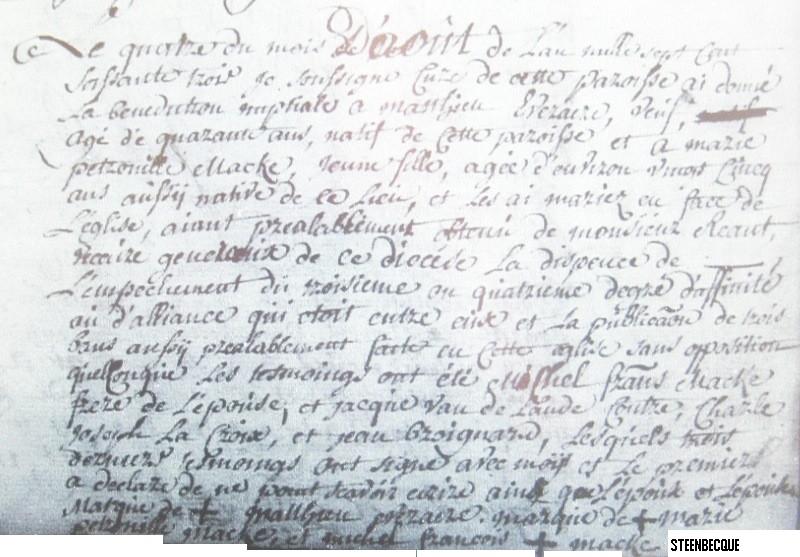 Le quatre du mois d'Août de L'an mille sept cent
soissante trois je soussigné Curé de cette paroisse ai donné
La benediction nuptiale a Matthieu Evezaire, veuf,
agé de quarante ans, natif de Cette paroisse et a marie
petronille Macke, jeune fille, agée d'environ vingt Cincq
ans aussÿ native de ce Lieu, et les ai mariez en face de
L'église, aiant prealablement obtenu de monsieur
vicaire de ce diocèse La dispence de
L'empechement du troisieme ou quatrieme degré d'affinité
ou d'alliance qui etoit entre eux et La publicaõn de trois
bans aussÿ prealablement faite en Cette eglise sans opposition
quelConque Les tesmoings ont été Michel frans Macke
frere de L'épouse, et jacque van de Contre, Charle
joseph La Croix, et jean Broignard, Lesquels trois
derniers tesmoings ont signé avec moÿ et Le premier
a declaré de ne point scavoir ecrire ainsy que L'époux et L'épouse
Marque de + Matthieu marque de + Marie
petronelle Macke, et michel francois + macke
STEENBECQUE